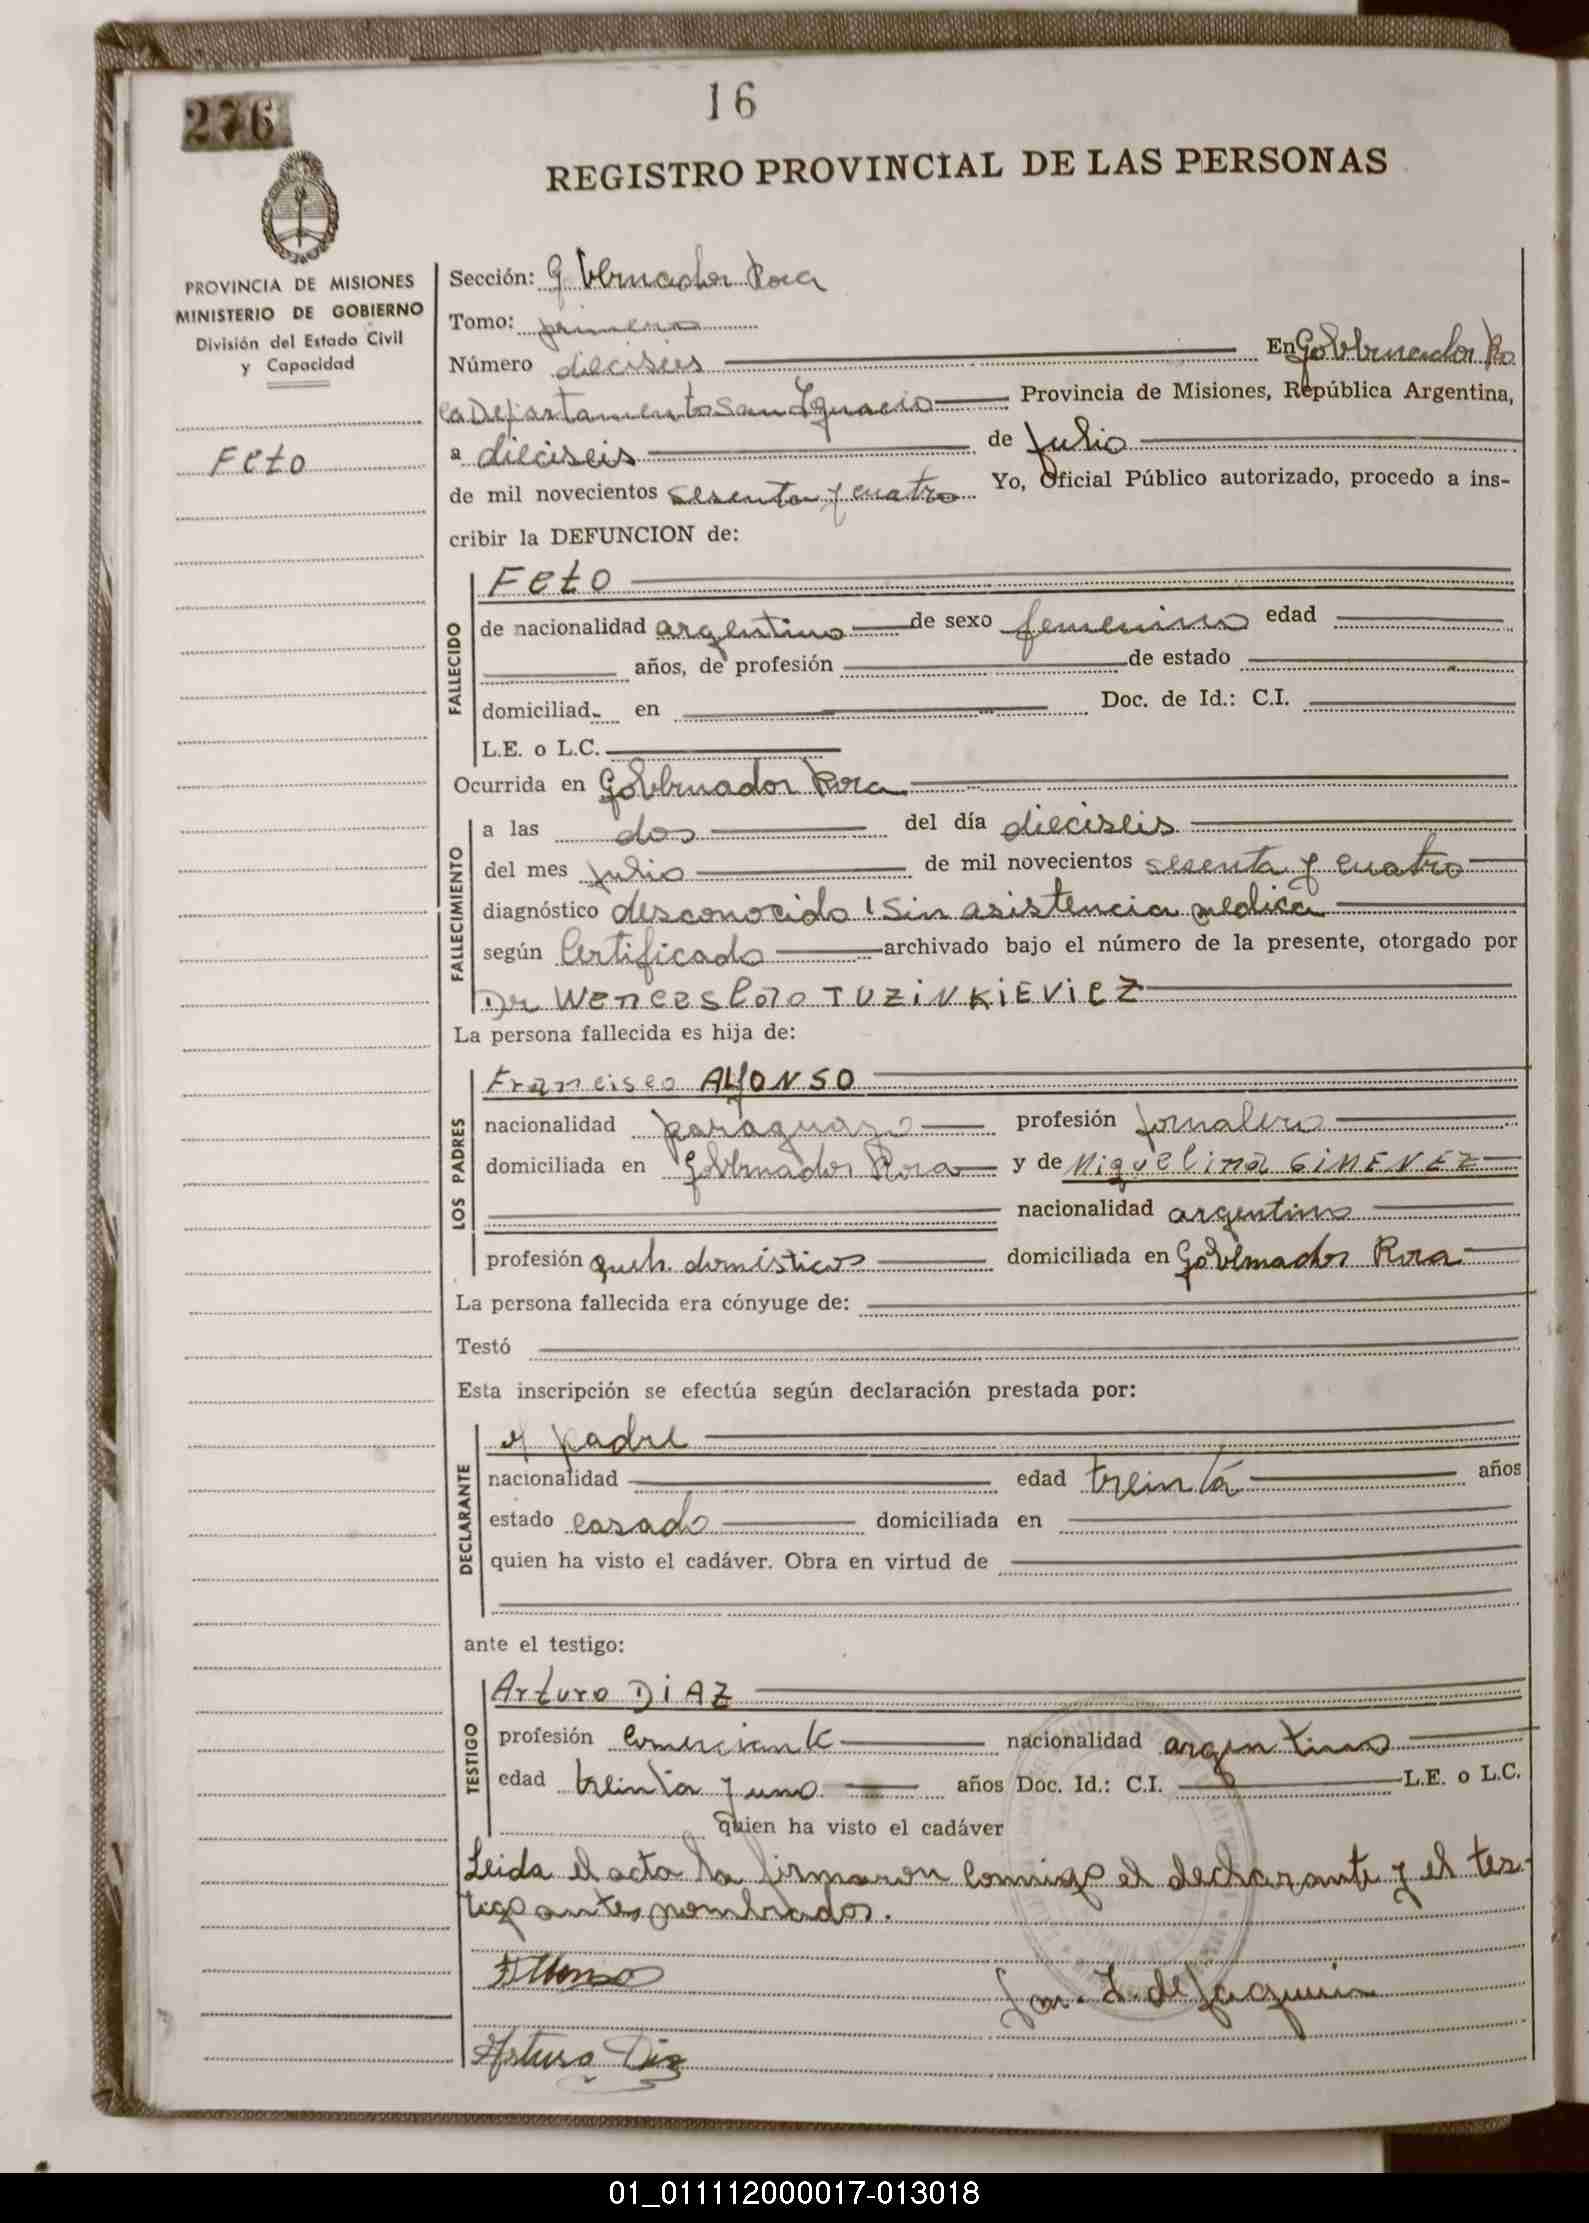 276
16
REGISTRO PROVINCIAL DE LAS PERSONAS
PROVINCIA DE MISIONES
MINISTERIO DE GOBIERNO
División del Estado Civil
y Capacidad
Feto
Sección: Gobernador Roca
Tomo: primero
Número dieciseis En Gobernador Ro
ca Departamento San Ignacio Provincia de Misiones, República Argentina,
a dieciseis de Julio
de mil novecientos sesenta y cuatro Yo, Oficial Público autorizado, procedo a ins-
cribir la DEFUNCION de:
FALLECIDO
Feto
de nacionalidad argentino de sexo femenino edad
años, de profesión de estado
domiciliad en Doc. de Id.: C.I.
L.E. o L.C.
Ocurrida en Gobernador Roca
FALLECIMIENTO
a las dos del día dieciseis
del mes Julio de mil novecientos sesenta y cuatro
diagnóstico desconocido Sin asistencia medica
según Certificado archivado bajo el número de la presente, otorgado por
Dr Wenceslao TUZiNKiEViCZ
La persona fallecida es hija de:
LOS PADRES
Francisco ALfONSO
nacionalidad paraguayo profesión Jornalero
domiciliada en Gobernador Roca y de Miguelina GiMENEZ
nacionalidad argentino
profesión queh. domésticos domiciliada en Gobernador Roca
La persona fallecida era cónyuge de:
Testó
Esta inscripción se efectúa según declaración prestada por:
DECLARANTE
padre
nacionalidad edad treinta años
estado casado domiciliada en
quien ha visto el cadáver. Obra en virtud de
ante el testigo:
TESTIGO
Arturo DiAZ
profesión comerciante nacionalidad argentino
edad treinta y uno años Doc. Id.: C.I. L.E. o L.C.
quien ha visto el cadáver
Leida el acta la firmaron conmigo el declarante y el tes-
tigo antes nombrados.
Arturo Diaz
01_011112000017-013018